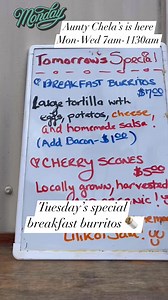 Monday
Aunty Chela's is here
Mon-Wed 7am-1130am
Tomorrows Special
BREAKFAST BURRITOS
$7.00
Large tortilla with
eggs, potatoes, cheese,
and homemade salsa
(Add Bacon-$1.00)
CHERRY SCONES
$5.00
Locally grown, harvested
Tuesday's special
breakfast burritos